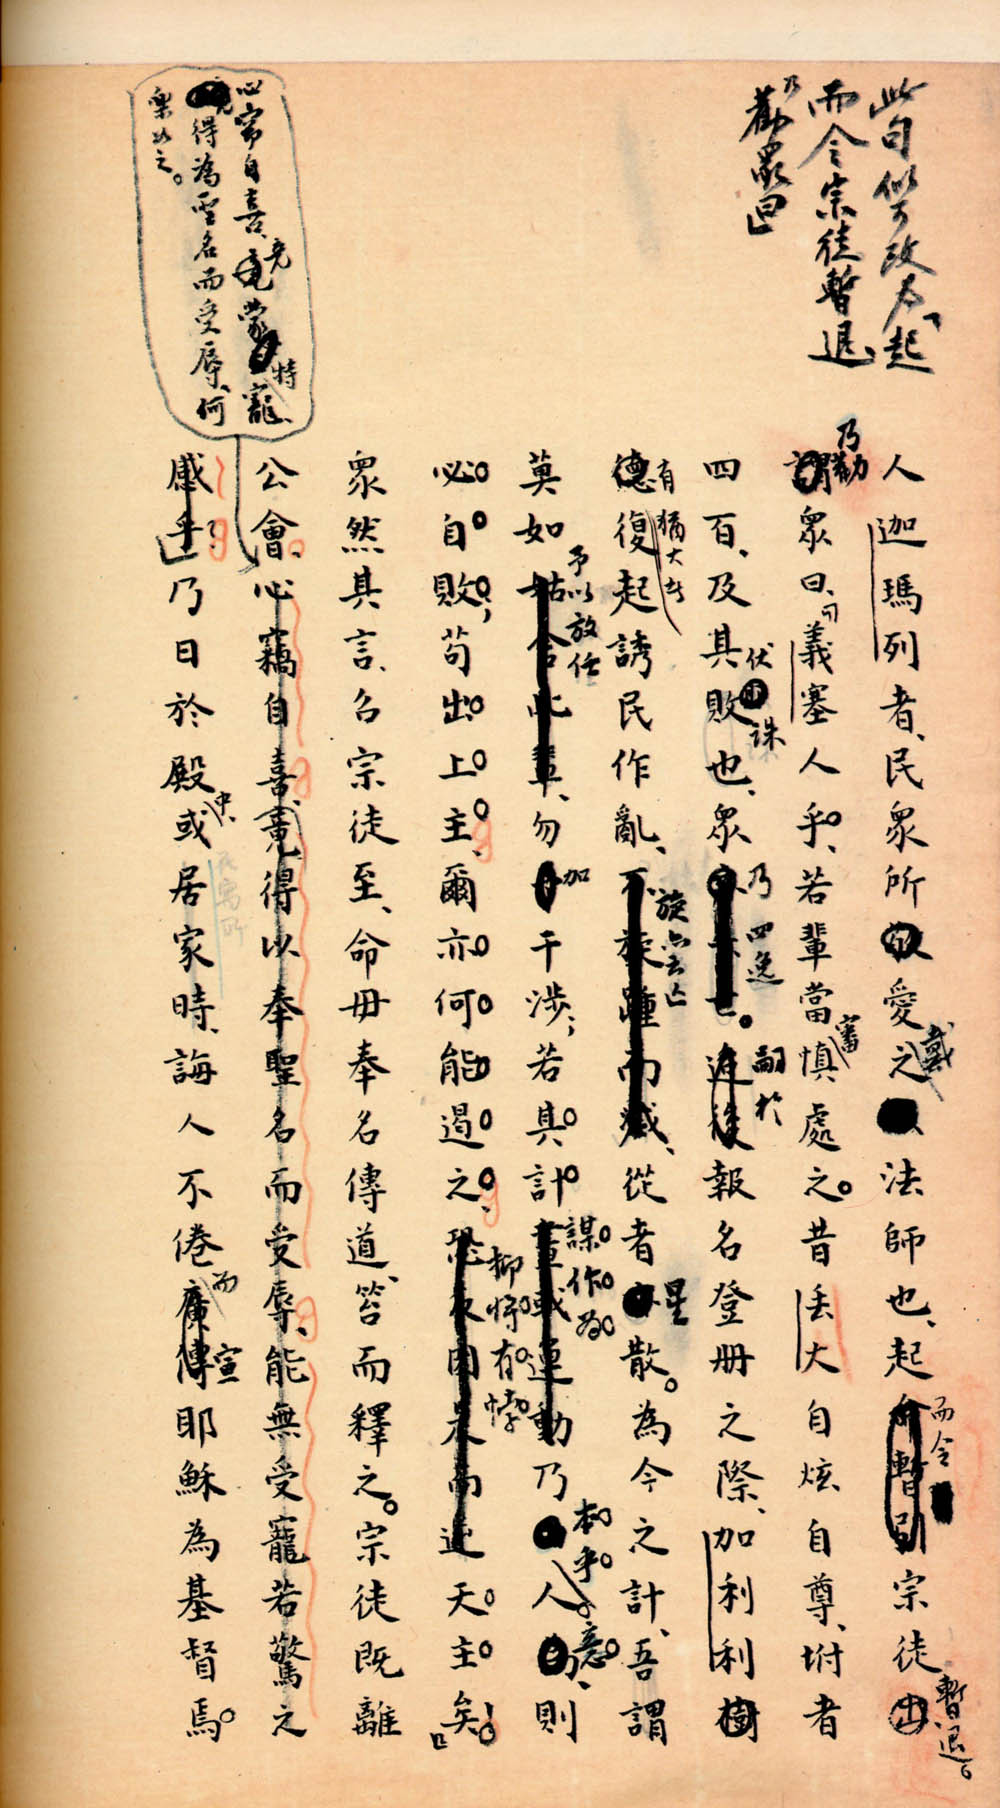 此句似可改為「起
而令宗徒暫退、
乃勸眾曰」
人迦瑪列者、民眾所愛戴之法師也、起而令宗徒暫退。
乃勸眾曰、義塞人乎、若輩當審慎處之。昔丟大自炫自尊、坿者
四百、及其敗也、伏誅眾乃四逸。嗣於報名登冊之際、加利利樹
有猶大者復起誘民作亂、旋亦云亡從者星散。為今之計、吾謂
莫如予以放任勿加干涉；若其計謀作為乃本乎人意、則
必自敗；苟出上主、爾亦何能遏之、抑將有悖天主矣！」
眾然其言、召宗徒至、命毋奉名傳道、笞而釋之。宗徒既離
公會、心竊自喜、竟得以奉聖名而受辱、能無受寵若驚之
感乎乃日於殿中、或居家時、誨人不倦而廣宣耶穌為基督焉。
心竊自喜、竟蒙特寵、
得為聖名而受辱、何
樂如之。